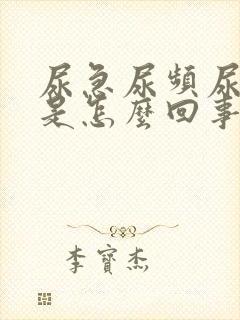 尿急尿頻尿
是怎麼回事
李寶杰